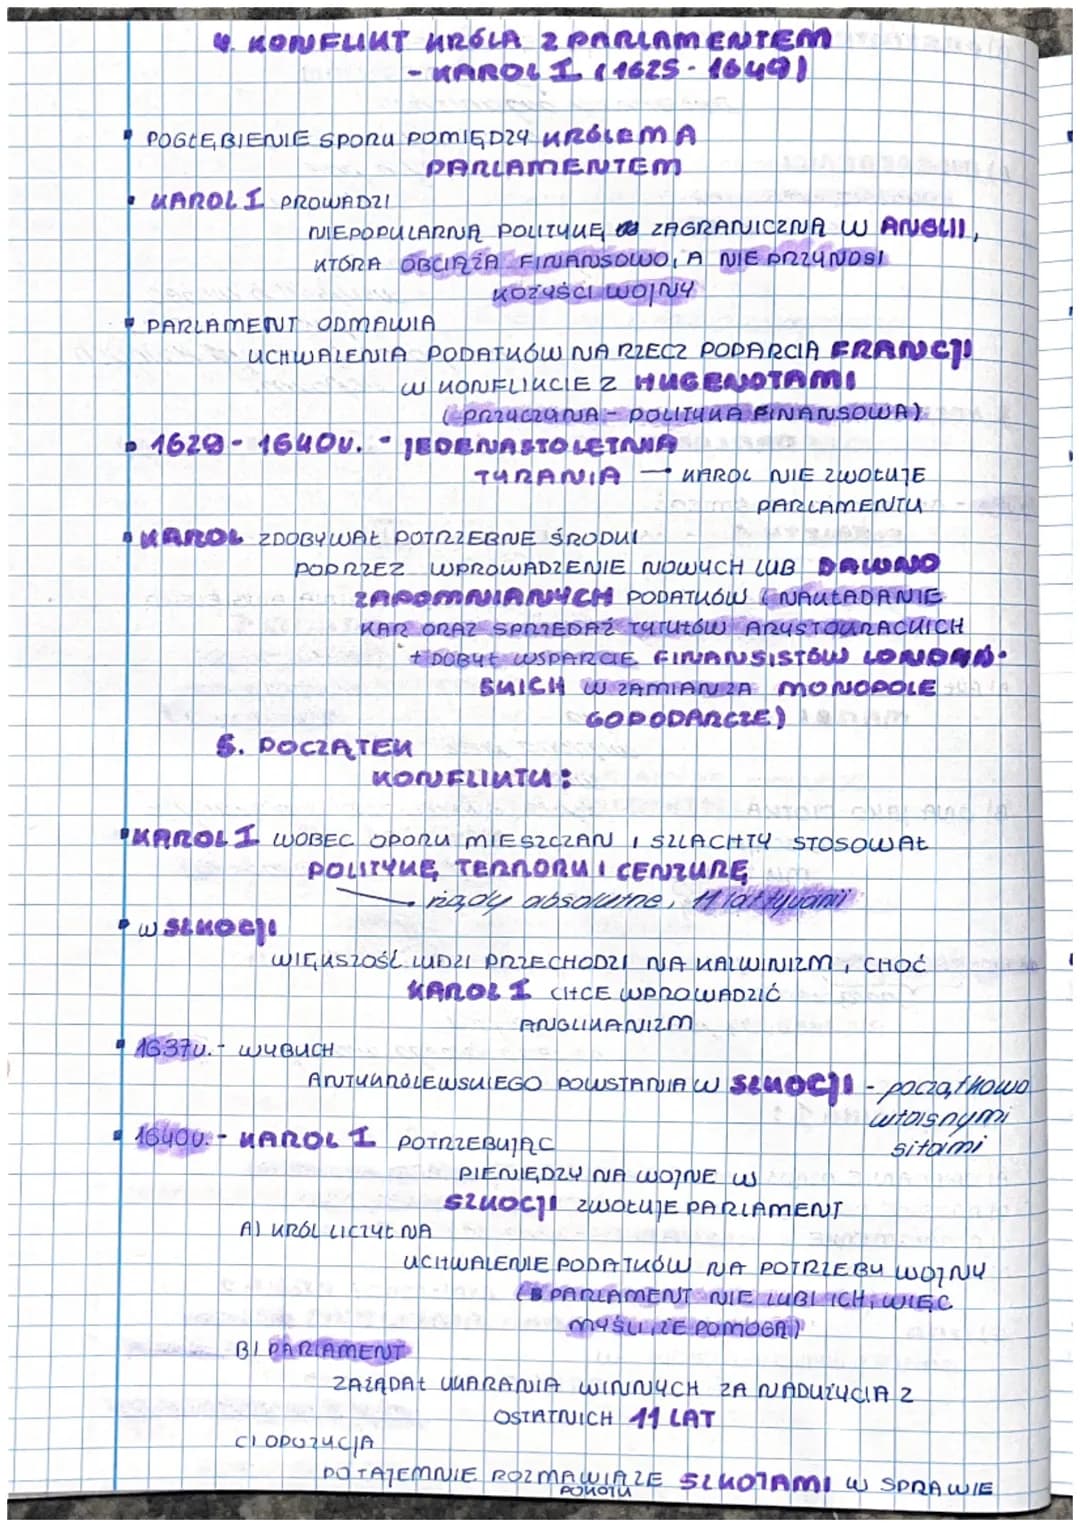 4. KONFLIKT KRÓLA Z PARLAMENTEM
- KAROL I (1625 - 1649)
POGŁĘBIENIE SPORU POMIĘDZY KRÓLEM A
PARLAMENTEM
KAROL I PROWADZI
NIEPOPULARNĄ POLITYKĘ ZAGRANICZNĄ W ANGLII,
KTÓRA OBCIĄŻA FINANSOWO, A NIE PRZYNOSI
KOŻYŚCI WOJNY
PARLAMENT ODMAWIA
UCHWALENIA PODATKÓW NA RZECZ PODARCIA FRANCJI
W KONFLIKCIE Z HUGENOTAMI
(PRZYCZYNA - POLITYKA FINANSOWA)
1629 - 1640r. - JEDENASTOLETNIA
TYRANIA → KAROL NIE ZWOŁUJE
PARLAMENTU
KAROL ZDOBYWAŁ POTRZEBNE ŚRODKI
POPRZEZ WPROWADZENIE NOWYCH LUB DAWNO
ZAPOMNIANYCH PODATKÓW (NAKŁADANIE
KAR ORAZ SPRZEDAŻ TYTUŁÓW ARYSTOKRACKICH
+ DOBYŁ WSPARCIE FINANSISTÓW LONDYŃ-
SKICH W ZAMIAN ZA MONOPOLE
GOPODARCZE)
5. POCZĄTEK
KONFLIKTU:
KAROL I WOBEC OPORU MIESZCZAN I SZLACHTY STOSOWAŁ
POLITYKĘ TERRORU I CENZURĘ
rządy absolutne, 11 lat tyranii
W SZKOCJI
WIĘKSZOŚĆ LUDZI PRZECHODZI NA KALWINIZM, CHOĆ
KAROL I CHCE WPROWADZIĆ
ANGLIKANIZM
1637r. - WYBUCH
ANTYKRÓLEWSKIEGO POWSTANIA W SZKOCJI - początkowo
własnymi
siłami
1640r. - KAROL I POTRZEBUJĄC
PIENIĘDZY NA WOJNĘ W
SZKOCJI ZWOŁUJE PARLAMENT
A) KRÓL LICZYŁ NA
UCHWALENIE PODATKÓW NA POTRZEBY WOJNY
(PARLAMENT NIE LUBI ICH, WIĘC
MYŚLI, ŻE POMOGĄ)
B) PARLAMENT
ZAŻĄDAŁ UKARANIA WINNYCH ZA NADUŻYCIA Z
OSTATNICH 11 LAT
C) OPOZYCJA
POTAJEMNIE ROZMAWIA ZE SZKOTAMI W SPRAWIE
POKOJU